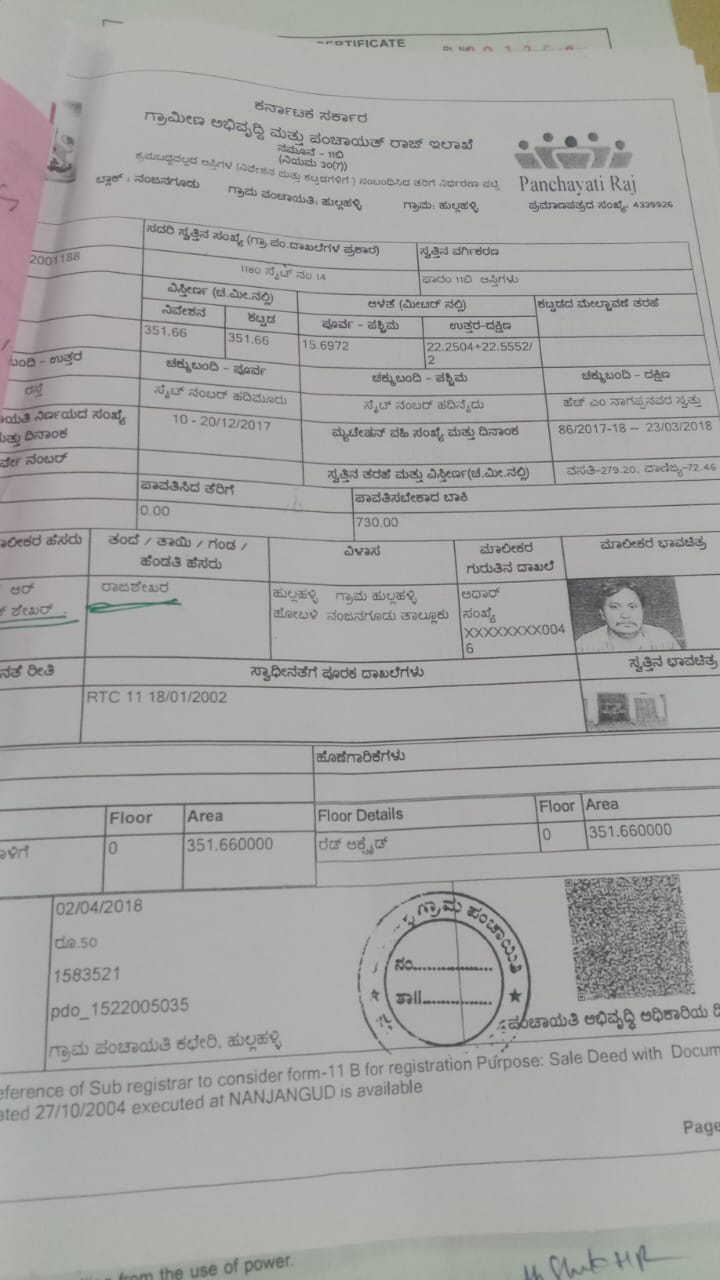 CERTIFICATE
ಕರ್ನಾಟಕ ಸರ್ಕಾರ
ಗ್ರಾಮೀಣ ಅಭಿವೃದ್ಧಿ ಮತ್ತು ಪಂಚಾಯತ್ ರಾಜ್ ಇಲಾಖೆ
ನಮೂನೆ - 11ಬಿ
(ನಿಯಮ 30(7))
ಕ್ರಮಬದ್ಧವಲ್ಲದ ಆಸ್ತಿಗಳ (ನಿವೇಶನ ಮತ್ತು ಕಟ್ಟಡಗಳಿಗೆ) ಸಂಬಂಧಿಸಿದ ತೆರಿಗೆ ನಿರ್ಧರಣಾ ಪಟ್ಟಿ
Panchayati Raj
ಬ್ಲಾಕ್ : ನಂಜನಗೂಡು ಗ್ರಾಮ ಪಂಚಾಯತಿ: ಹುಲ್ಲಹಳ್ಳಿ ಗ್ರಾಮ: ಹುಲ್ಲಹಳ್ಳಿ ಪ್ರಮಾಣಪತ್ರದ ಸಂಖ್ಯೆ: 4339926
ಸದರಿ ಸ್ವತ್ತಿನ ಸಂಖ್ಯೆ (ಗ್ರಾ.ಪಂ.ದಾಖಲೆಗಳ ಪ್ರಕಾರ) ಸ್ವತ್ತಿನ ವರ್ಗೀಕರಣ
2001188 1180 ಸೈಟ್ ನಂ 14 ಫಾರಂ 11ಬಿ ಆಸ್ತಿಗಳು
ವಿಸ್ತೀರ್ಣ (ಚ.ಮೀ.ನಲ್ಲಿ) ಅಳತೆ (ಮೀಟರ್ ನಲ್ಲಿ) ಕಟ್ಟಡದ ಮೇಲ್ಛಾವಣಿ ತರಹೆ
ನಿವೇಶನ ಕಟ್ಟಡ ಪೂರ್ವ - ಪಶ್ಚಿಮ ಉತ್ತರ-ದಕ್ಷಿಣ
351.66 351.66 15.6972 22.2504+22.5552/
2
ಬಂದಿ - ಉತ್ತರ ಚಕ್ಕುಬಂದಿ - ಪೂರ್ವ ಚಕ್ಕುಬಂದಿ - ಪಶ್ಚಿಮ ಚಕ್ಕುಬಂದಿ - ದಕ್ಷಿಣ
ರಸ್ತೆ ಸೈಟ್ ನಂಬರ್ ಹದಿಮೂರು ಸೈಟ್ ನಂಬರ್ ಹದಿನೈದು ಹೆಚ್ ಎಂ ನಾಗಪ್ಪನವರ ಸ್ವತ್ತು
ಯತಿ ನಿರ್ಣಯದ ಸಂಖ್ಯೆ
ಮತ್ತು ದಿನಾಂಕ 10 - 20/12/2017 ಮ್ಯುಟೇಶನ್ ವಹಿ ಸಂಖ್ಯೆ ಮತ್ತು ದಿನಾಂಕ 86/2017-18 -- 23/03/2018
ರ್ವೆ ನಂಬರ್ ಸ್ವತ್ತಿನ ತರಹೆ ಮತ್ತು ವಿಸ್ತೀರ್ಣ(ಚ.ಮೀ.ನಲ್ಲಿ) ವಸತಿ-279.20, ವಾಣಿಜ್ಯ-72.46
ಪಾವತಿಸಿದ ತೆರಿಗೆ ಪಾವತಿಸಬೇಕಾದ ಬಾಕಿ
0.00 730.00
ಾಲೀಕರ ಹೆಸರು ತಂದೆ / ತಾಯಿ / ಗಂಡ /
ಹೆಂಡತಿ ಹೆಸರು ವಿಳಾಸ ಮಾಲೀಕರ
ಗುರುತಿನ ದಾಖಲೆ ಮಾಲೀಕರ ಭಾವಚಿತ್ರ
ಆರ್
ಶೇಖರ್ ರಾಜಶೇಖರ ಹುಲ್ಲಹಳ್ಳಿ ಗ್ರಾಮ ಹುಲ್ಲಹಳ್ಳಿ
ಹೋಬಳಿ ನಂಜನಗೂಡು ತಾಲ್ಲೂಕು ಆಧಾರ್
ಸಂಖ್ಯೆ
XXXXXXXX004
6
ನತೆ ರೀತಿ ಸ್ವಾಧೀನತೆಗೆ ಪೂರಕ ದಾಖಲೆಗಳು ಸ್ವತ್ತಿನ ಭಾವಚಿತ್ರ
RTC 11 18/01/2002
ಹೊಣೆಗಾರಿಕೆಗಳು
Floor Area Floor Details Floor Area
ಳಿಗೆ 0 351.660000 ರೆಡ್ ಆಕ್ಸೈಡ್ 0 351.660000
02/04/2018
ರೂ.50
1583521
pdo_1522005035
ಗ್ರಾಮ ಪಂಚಾಯತಿ ಕಛೇರಿ, ಹುಲ್ಲಹಳ್ಳಿ
ಗ್ರಾಮ ಪಂಚಾಯಿತಿ
ನಂ
ತಾ||
ಪಂಚಾಯತಿ ಅಭಿವೃದ್ಧಿ ಅಧಿಕಾರಿಯ
eference of Sub registrar to consider form-11 B for registration Purpose: Sale Deed with Docum
ated 27/10/2004 executed at NANJANGUD is available
Page
from the use of power.